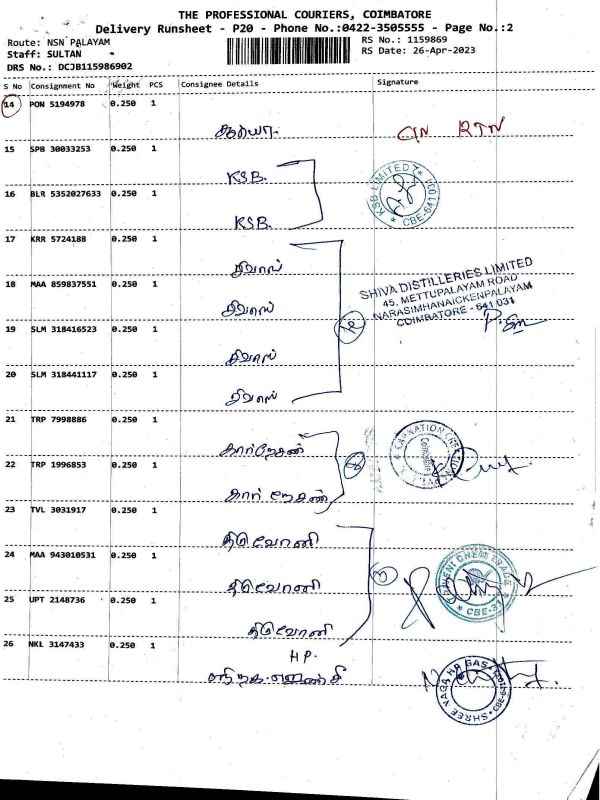 THE PROFESSIONAL COURIERS, COIMBATORE
Delivery Runsheet - P20 - Phone No.:0422-3505555 - Page No.:2
Route: NSN PALAYAM
RS No.: 1159869
Staff: SULTAN
RS Date: 26-Apr-2023
DRS No.: DCJB115986902
S No Consignment No Weight PCS Consignee Details Signature
14 PON 5194978 0.250 1
CIN RTN
15 SPB 30033253 0.250 1
KSB.
KSB LIMITED
CBE-641 031
16 BLR 5352027633 0.250 1
KSB.
17 KRR 5724188 0.250 1
சிவாஸ்
18 MAA 859837551 0.250 1
சிவாஸ்
SHIVA DISTILLERIES LIMITED
45, METTUPALAYAM ROAD
NARASIMHANAICKENPALAYAM
COIMBATORE - 641 031
19 SLM 318416523 0.250 1
சிவாஸ்
20 SLM 318441117 0.250 1
சிவாஸ்
21 TRP 7998886 0.250 1
கார்நேசன்
Coimbatore
22 TRP 1996853 0.250 1
கார் நேசன்
23 TVL 3031917 0.250 1
திரிவேணி
24 MAA 943010531 0.250 1
திரிவேணி
CBE-31
25 UPT 2148736 0.250 1
திரிவேணி
26 NKL 3147433 0.250 1
HP.
SHREE NAGA HP GAS